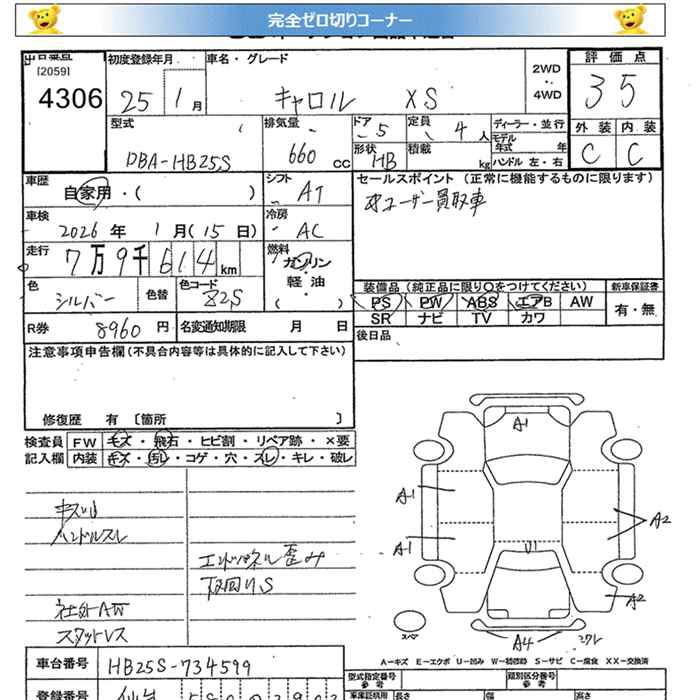 完全ゼロ切りコーナー
出品番号
[2059]
4306
初度登録年月
25 1月
車名・グレード
キャロル XS
2WD
4WD
評価点
3 5
型式
DBA-HB25S
排気量
660 cc
ドア 5
定員 4人
ディーラー・並行
モデル年式 年
外装 内装
C C
形状 HB
積載 kg
ハンドル 左・右
車歴
自家用・( )
シフト
AT
セールスポイント (正常に機能するものに限ります)
ユーザー買取車
車検
2026年 1月(15日)
冷房
AC
走行
7万9千614km
燃料
ガソリン
軽油
( )
色
シルバー
色替
色コード
Z2S
装備品 (純正品に限り〇をつけてください)
新車保証書
PS PW ABS エアB AW
有・無
SR ナビ TV カワ
R券 8960円
名変通知期限 月 日
後日品
注意事項申告欄(不具合内容等は具体的に記入して下さい)
修復歴 有 〔箇所 〕
検査員 FW キズ・飛石・ヒビ割・リペア跡・×要
記入欄 内装 キズ・汚レ・コゲ・穴・スレ・キレ・破レ
キスリ
ハンドルスレ
エンドパネル歪み
下回りS
社外AW
スタットレス
A1
A1
A1
U1
A2
A2
A4
スペア
A-キズ E-エクボ U-凹み W-補修跡 S-サビ C-腐食 XX-交換済
車台番号
HB25S-734599
型式指定番号
参考
類別区分番号
参考
登録番号
仙台
長さ
幅
高さ